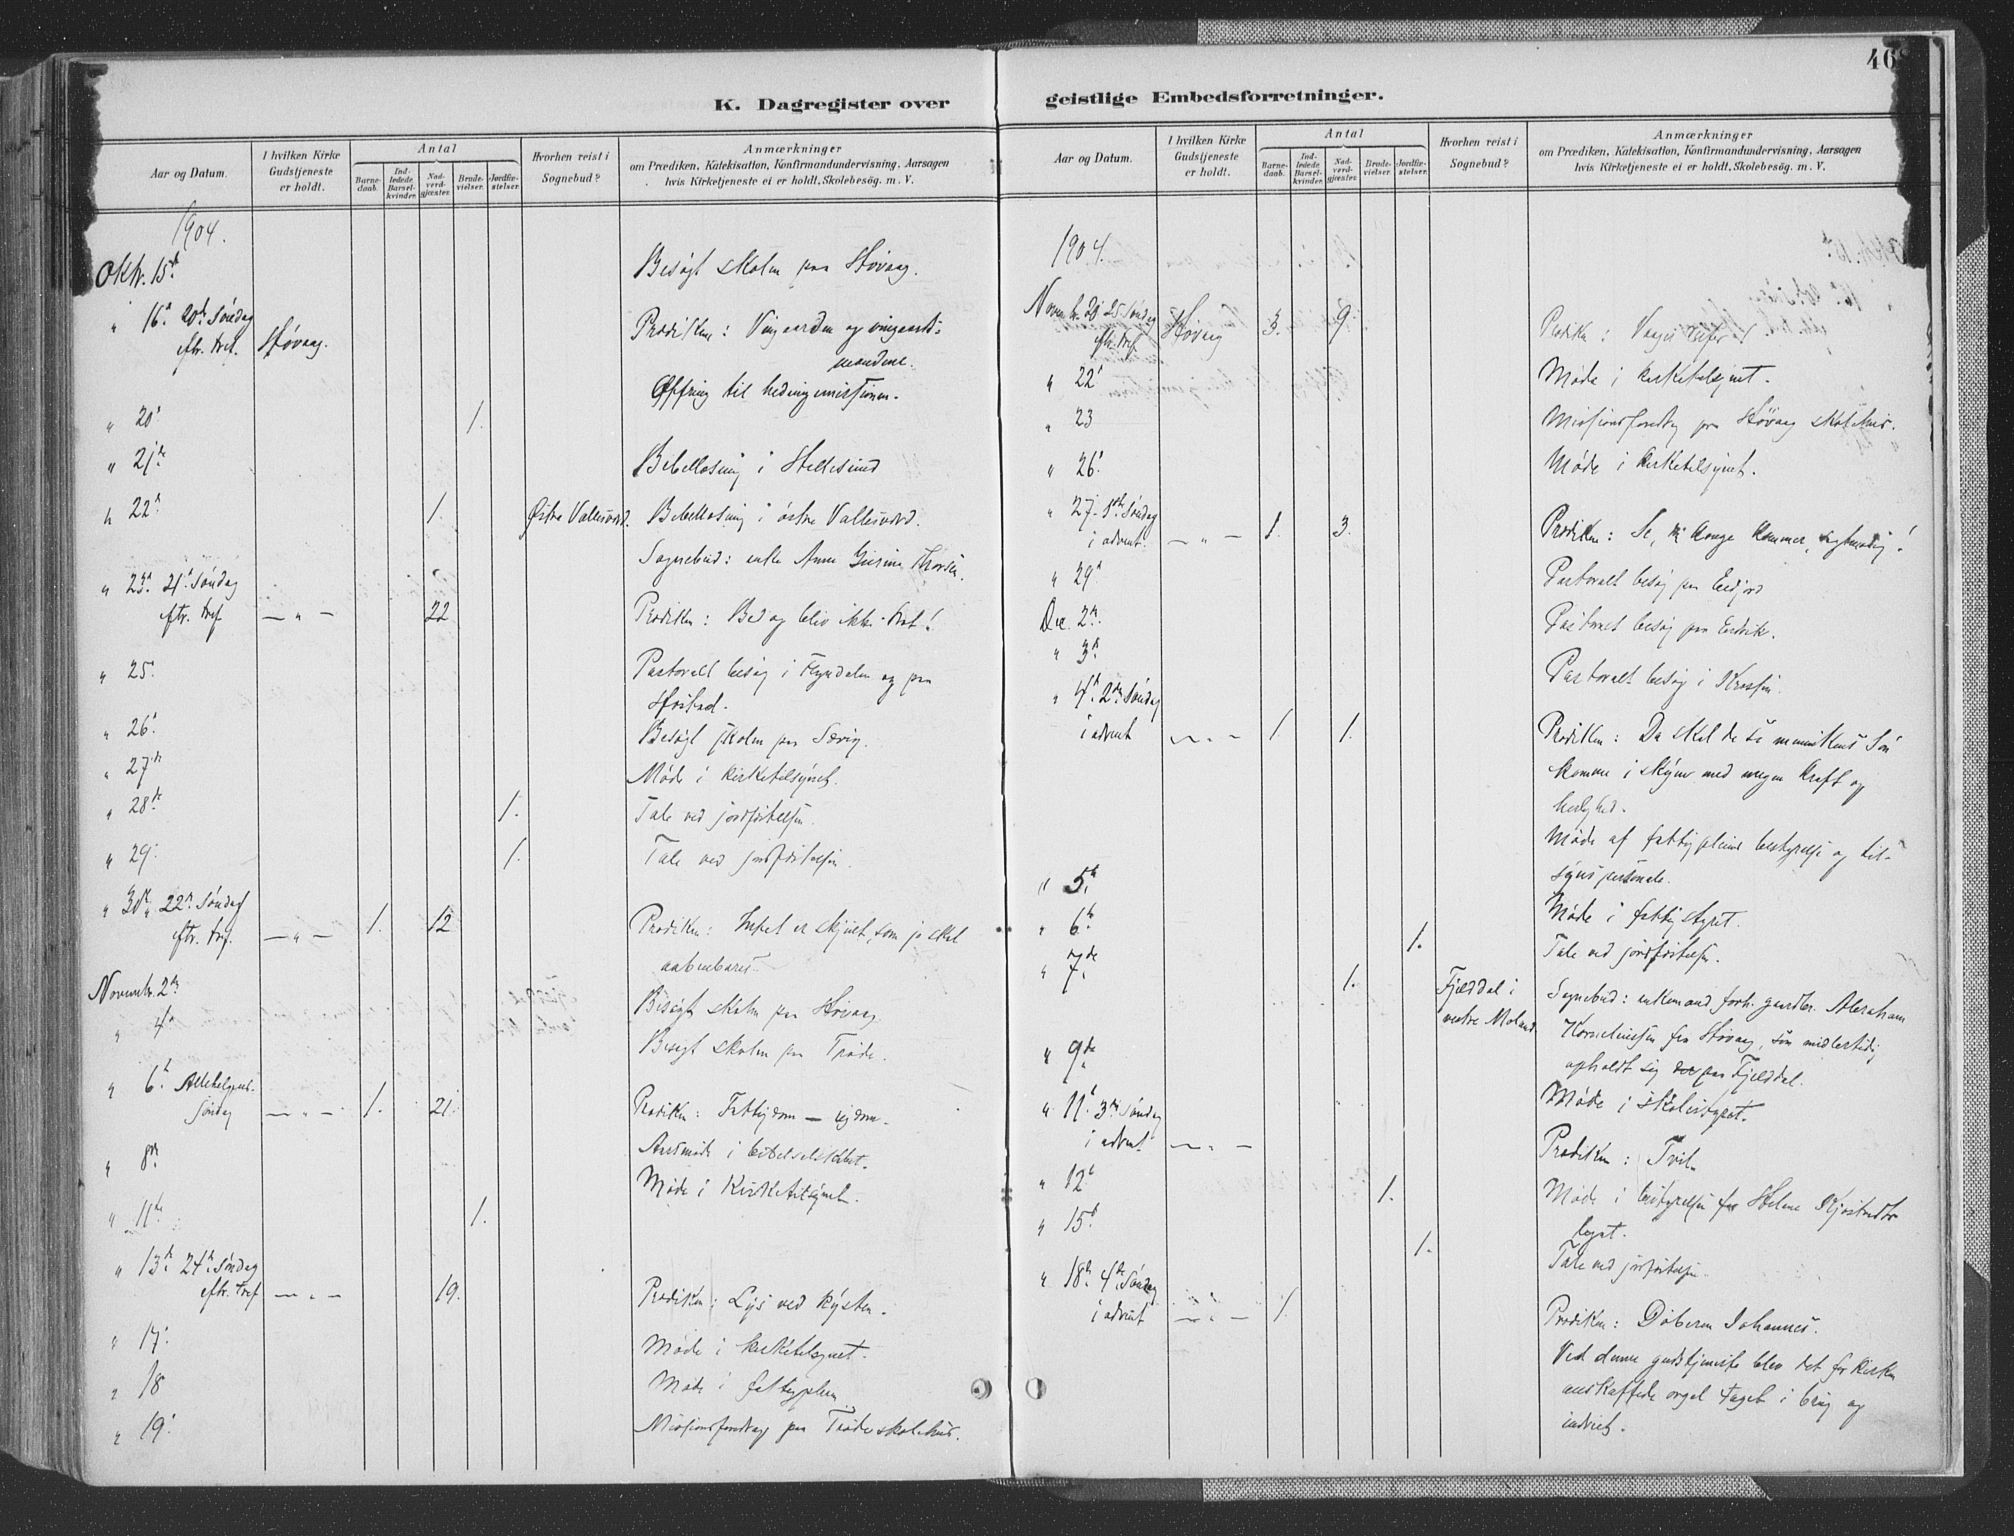 468
K. Dagregister over
geistlige Embedsforretninger.
Aar og Datum.
I hvilken Kirke
Gudstjeneste
er holdt.
Antal
Barne-
daab.
Ind-
ledede
Barsel-
kvinder.
Nad-
verd-
gjæster.
Brude-
vielser.
Jordfæ-
stelser.
Hvorhen reist i
Sognebud?
Anmærkninger
om Prædiken, Katekisation, Konfirmandundervisning, Aarsagen
hvis Kirketjeneste ei er holdt, Skolebesøg. m. V.
1904.
Oktr. 15de Besøgt skolen paa Høvaag.
" 16de 20de Søndag Prædiken: Vingaarden og vingaards-
eftr. tref. Høvaag. mændene.
Offring til hedningemissionen.
" 20de 1.
" 21de Bibellæsning i Hellesund
" 22de 1. Østre Vallesverd. Bibellæsning i østre Vallesverd.
Sognebud: enke Anne Gurine Thorsen.
" 23de 21de Søndag
eftr. tref — " — 22 Prædiken: Bed og bliv ikke træt!
" 25de Pastoralt besøg i Fjeldalen og paa
Høstad.
" 26de Besøgt skolen paa Særvig.
" 27de Møde i kirketilsynet.
" 28de 1. Tale ved jordfæstelsen.
" 29de 1. Tale ved jordfæstelsen.
" 30de 22de Søndag
eftr. tref. — " — 1. 12 Prædiken: Intet er skjult, som jo skal
aabenbares.
Novembr. 2den Besøgt skolen paa Høvaag.
" 4de Besøgt skolen paa Trøde.
" 6te Allehelgens-
Søndag — " — 1. 21. Prædiken: Fattigdom — rigdom.
" 8de Aarsmøde i bibelselskabet.
Møde i Kirketilsynet.
" 11te 1.
" 13de 24de Søndag
eftr. tref — " — 19. Prædiken: Lys ved kysten.
" 17de Møde i kirketilsynet.
" 18 Møde i fattigplein
" 19de Missionsforedrag paa Trøde skolehus.
Aar og Datum.
I hvilken Kirke
Gudstjeneste
er holdt.
Antal
Barne-
daab.
Ind-
ledede
Barsel-
kvinder.
Nad-
verd-
gjæster.
Brude-
vielser.
Jordfæ-
stelser.
Hvorhen reist i
Sognebud?
Anmærkninger
om Prædiken, Katekisation, Konfirmandundervisning, Aarsagen
hvis Kirketjeneste ei er holdt, Skolebesøg. m. V.
1904.
Novembr. 20 25 Søndag
eftr. tref Høvaag 3. 9. Prædiken:
" 22de Møde i kirketilsynet.
" 23 Missionsforedrag paa Høvaag skolehus.
" 26de Møde i kirketilsynet.
" 27de 1ste Søndag
i advent. — " — 1. 3. Prædiken: Se, din konge kommer, sagtmodig!
" 29de Pastoralt besøg paa Eidjord
Dec. 2den Pastoralt besøg paa Eidvik.
" 3de Pastoralt besøg i
" 4de 2den Søndag
i advent — " — 1 1. Prædiken: Da skal de se menneskens Søn
komme i skyen med megen kraft og
herlighed.
Møde af fattigpleiens bestyrelse og til-
synspersonale.
" 5te Møde i fattigstyret.
" 6te 1. Tale ved jordfæstelsen.
" 7de 1. Fjælddal i
vestre Moland. Sognebud: enkemand forh. gaardbr. Abraham
Korneliussen fra Høvaag, som midlertidig
opholdt sig paa Fjælddal.
" 9de Møde i skolestyret.
" 11te 3die Søndag
i advent — " — Prædiken: Tvil.
" 12te 1. Møde i bestyrelsen for Helene Kjøstvedts
legat.
" 15de 1. Tale ved jordfæstelsen.
" 18de 4de Søndag
i advent — " — 1. Prædiken: Døberen Johannes.
Ved denne gudstjeneste blev det for kirken
anskaffede orgel taget i brug og
indviet.